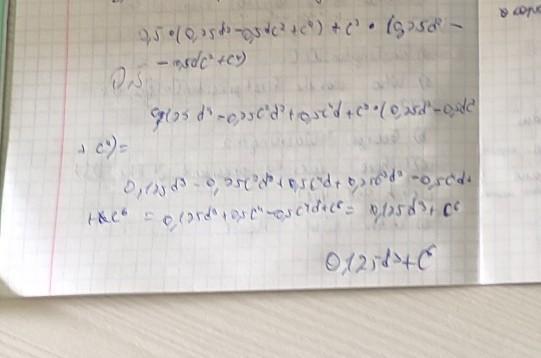 0,5•(0,25d²-0,5dc²+c⁴)+c²•(0,25d²-
-0,5dc²+c⁴)
0,5
0,125d³-0,25c²d²+0,5c⁴d+c²•(0,25d²-0,5dc²
+c⁴)=
0,125d³-0,25c²d²+0,5c⁴d+0,25c²d²-0,5c⁴d+
+c⁶=0,125d³+0,5c⁴-0,5c⁴d+c⁶=0,125d³+c⁶
0,125d³+c⁶